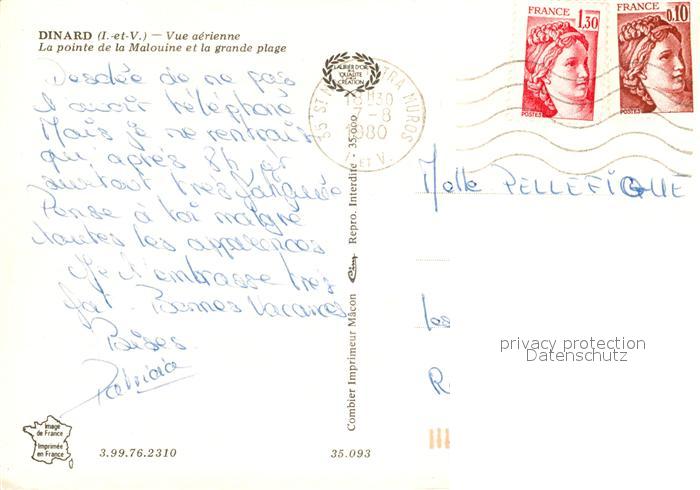 DINARD (I.-et-V.) — Vue aérienne
La pointe de la Malouine et la grande plage
FRANCE
1,30
POSTES
FRANCE
0,10
POSTES
LAURIER D'OR
DE LA
QUALITÉ
CRÉATION
35 ST MALO INTRA MUROS
18H30
7-8
1980
I. ET V.
Desolée de ne pas
t'avoir téléphoné
Mais je ne rentrais
qu'après 8h, et
surtout très fatiguée
Pense à toi malgré
toutes les apparences
Je t'embrasse très
fort. Bonnes Vacances
Bises
Patricia
Combier Imprimeur Mâcon Cim Repro. Interdite - 35-000
Melle PELLEFIGUE
les
R
privacy protection
Datenschutz
Image
de France
Imprimée
en France
3.99.76.2310
35.093